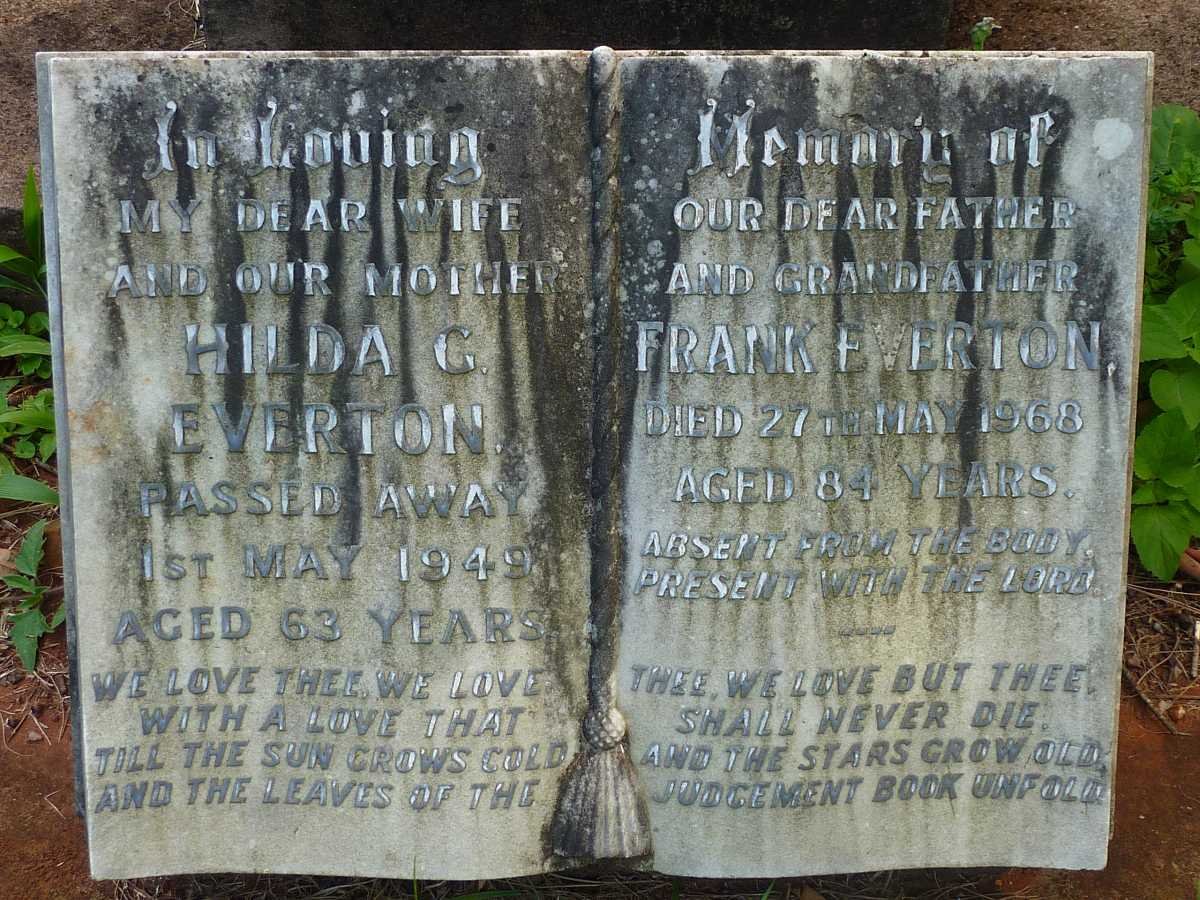 In Loving
MY DEAR WIFE
AND OUR MOTHER
HILDA G.
EVERTON.
PASSED AWAY
1ST MAY 1949
AGED 63 YEARS.
WE LOVE THEE, WE LOVE
WITH A LOVE THAT
TILL THE SUN GROWS COLD
AND THE LEAVES OF THE
Memory of
OUR DEAR FATHER
AND GRANDFATHER
FRANK EVERTON.
DIED 27TH MAY 1968
AGED 84 YEARS.
ABSENT FROM THE BODY,
PRESENT WITH THE LORD.
THEE, WE LOVE BUT THEE,
SHALL NEVER DIE.
AND THE STARS GROW OLD,
JUDGEMENT BOOK UNFOLD.